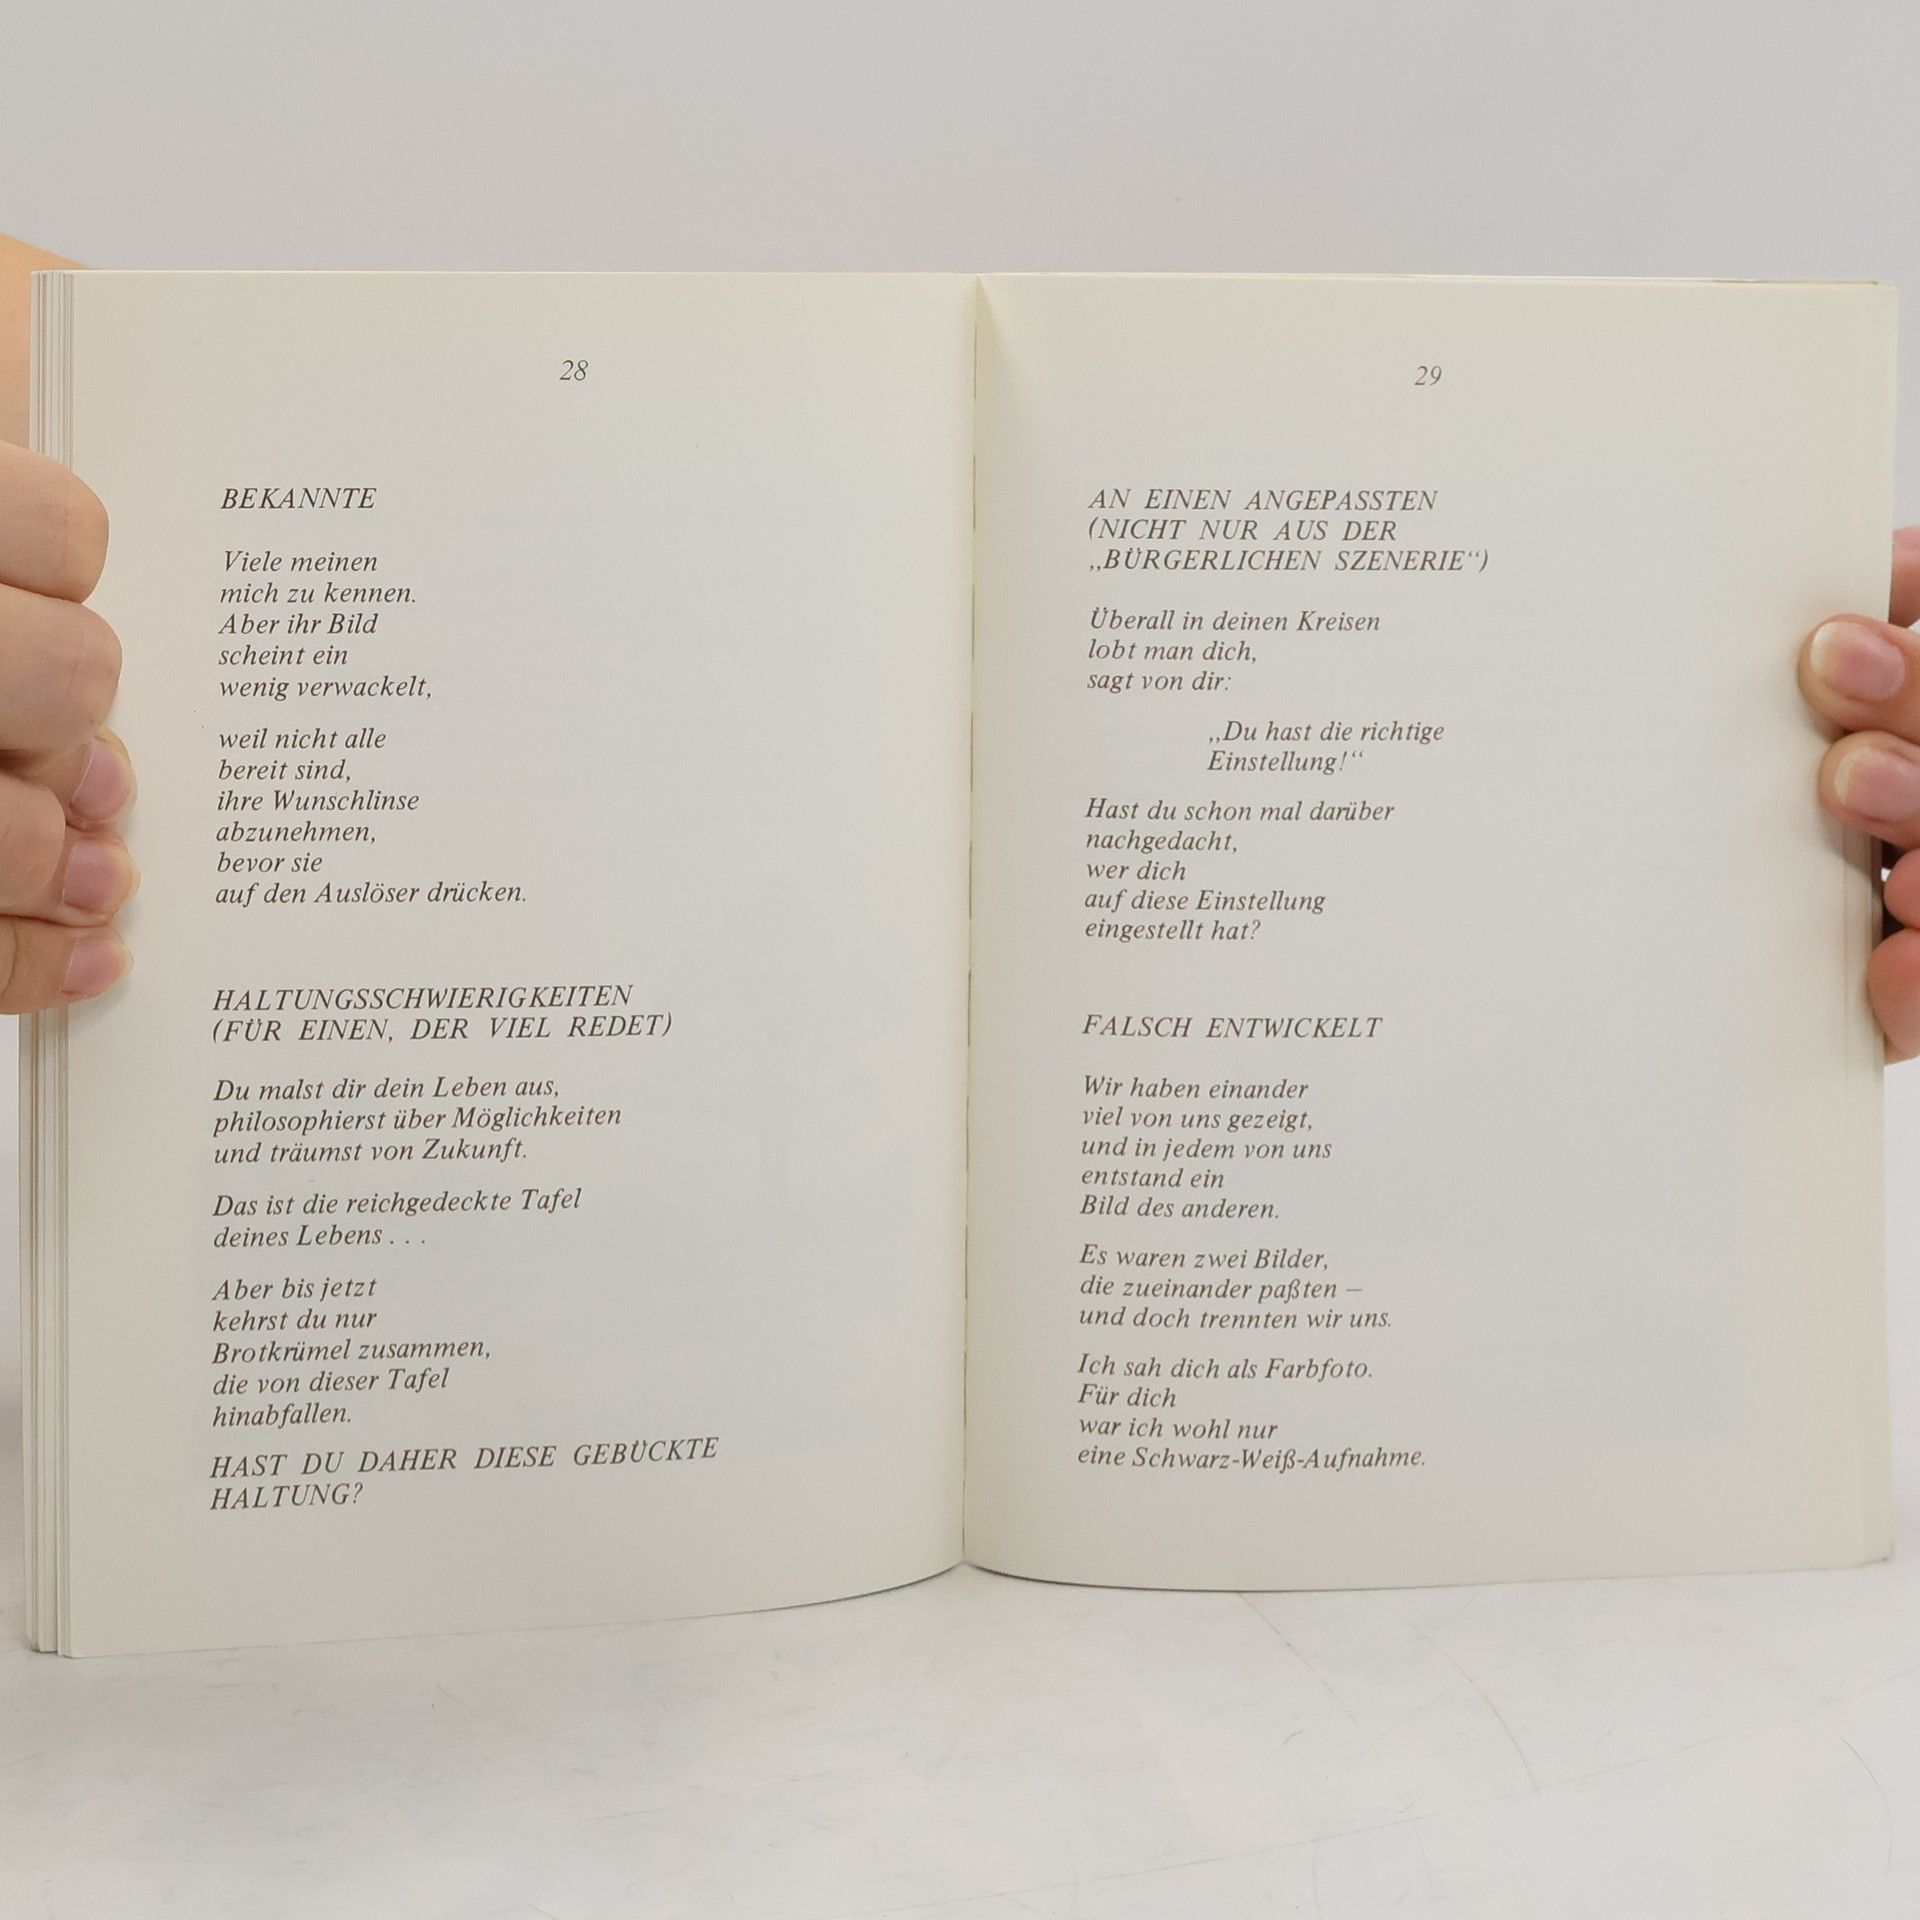 28
BEKANNTE
Viele meinen
mich zu kennen.
Aber ihr Bild
scheint ein
wenig verwackelt,
weil nicht alle
bereit sind,
ihre Wunschlinse
abzunehmen,
bevor sie
auf den Auslöser drücken.
HALTUNGSSCHWIERIGKEITEN
(FÜR EINEN, DER VIEL REDET)
Du malst dir dein Leben aus,
philosophierst über Möglichkeiten
und träumst von Zukunft.
Das ist die reichgedeckte Tafel
deines Lebens . . .
Aber bis jetzt
kehrst du nur
Brotkrümel zusammen,
die von dieser Tafel
hinabfallen.
HAST DU DAHER DIESE GEBÜCKTE
HALTUNG?
29
AN EINEN ANGEPASSTEN
(NICHT NUR AUS DER
„BÜRGERLICHEN SZENERIE“)
Überall in deinen Kreisen
lobt man dich,
sagt von dir:
„Du hast die richtige
Einstellung!“
Hast du schon mal darüber
nachgedacht,
wer dich
auf diese Einstellung
eingestellt hat?
FALSCH ENTWICKELT
Wir haben einander
viel von uns gezeigt,
und in jedem von uns
entstand ein
Bild des anderen.
Es waren zwei Bilder,
die zueinander paßten –
und doch trennten wir uns.
Ich sah dich als Farbfoto.
Für dich
war ich wohl nur
eine Schwarz-Weiß-Aufnahme.